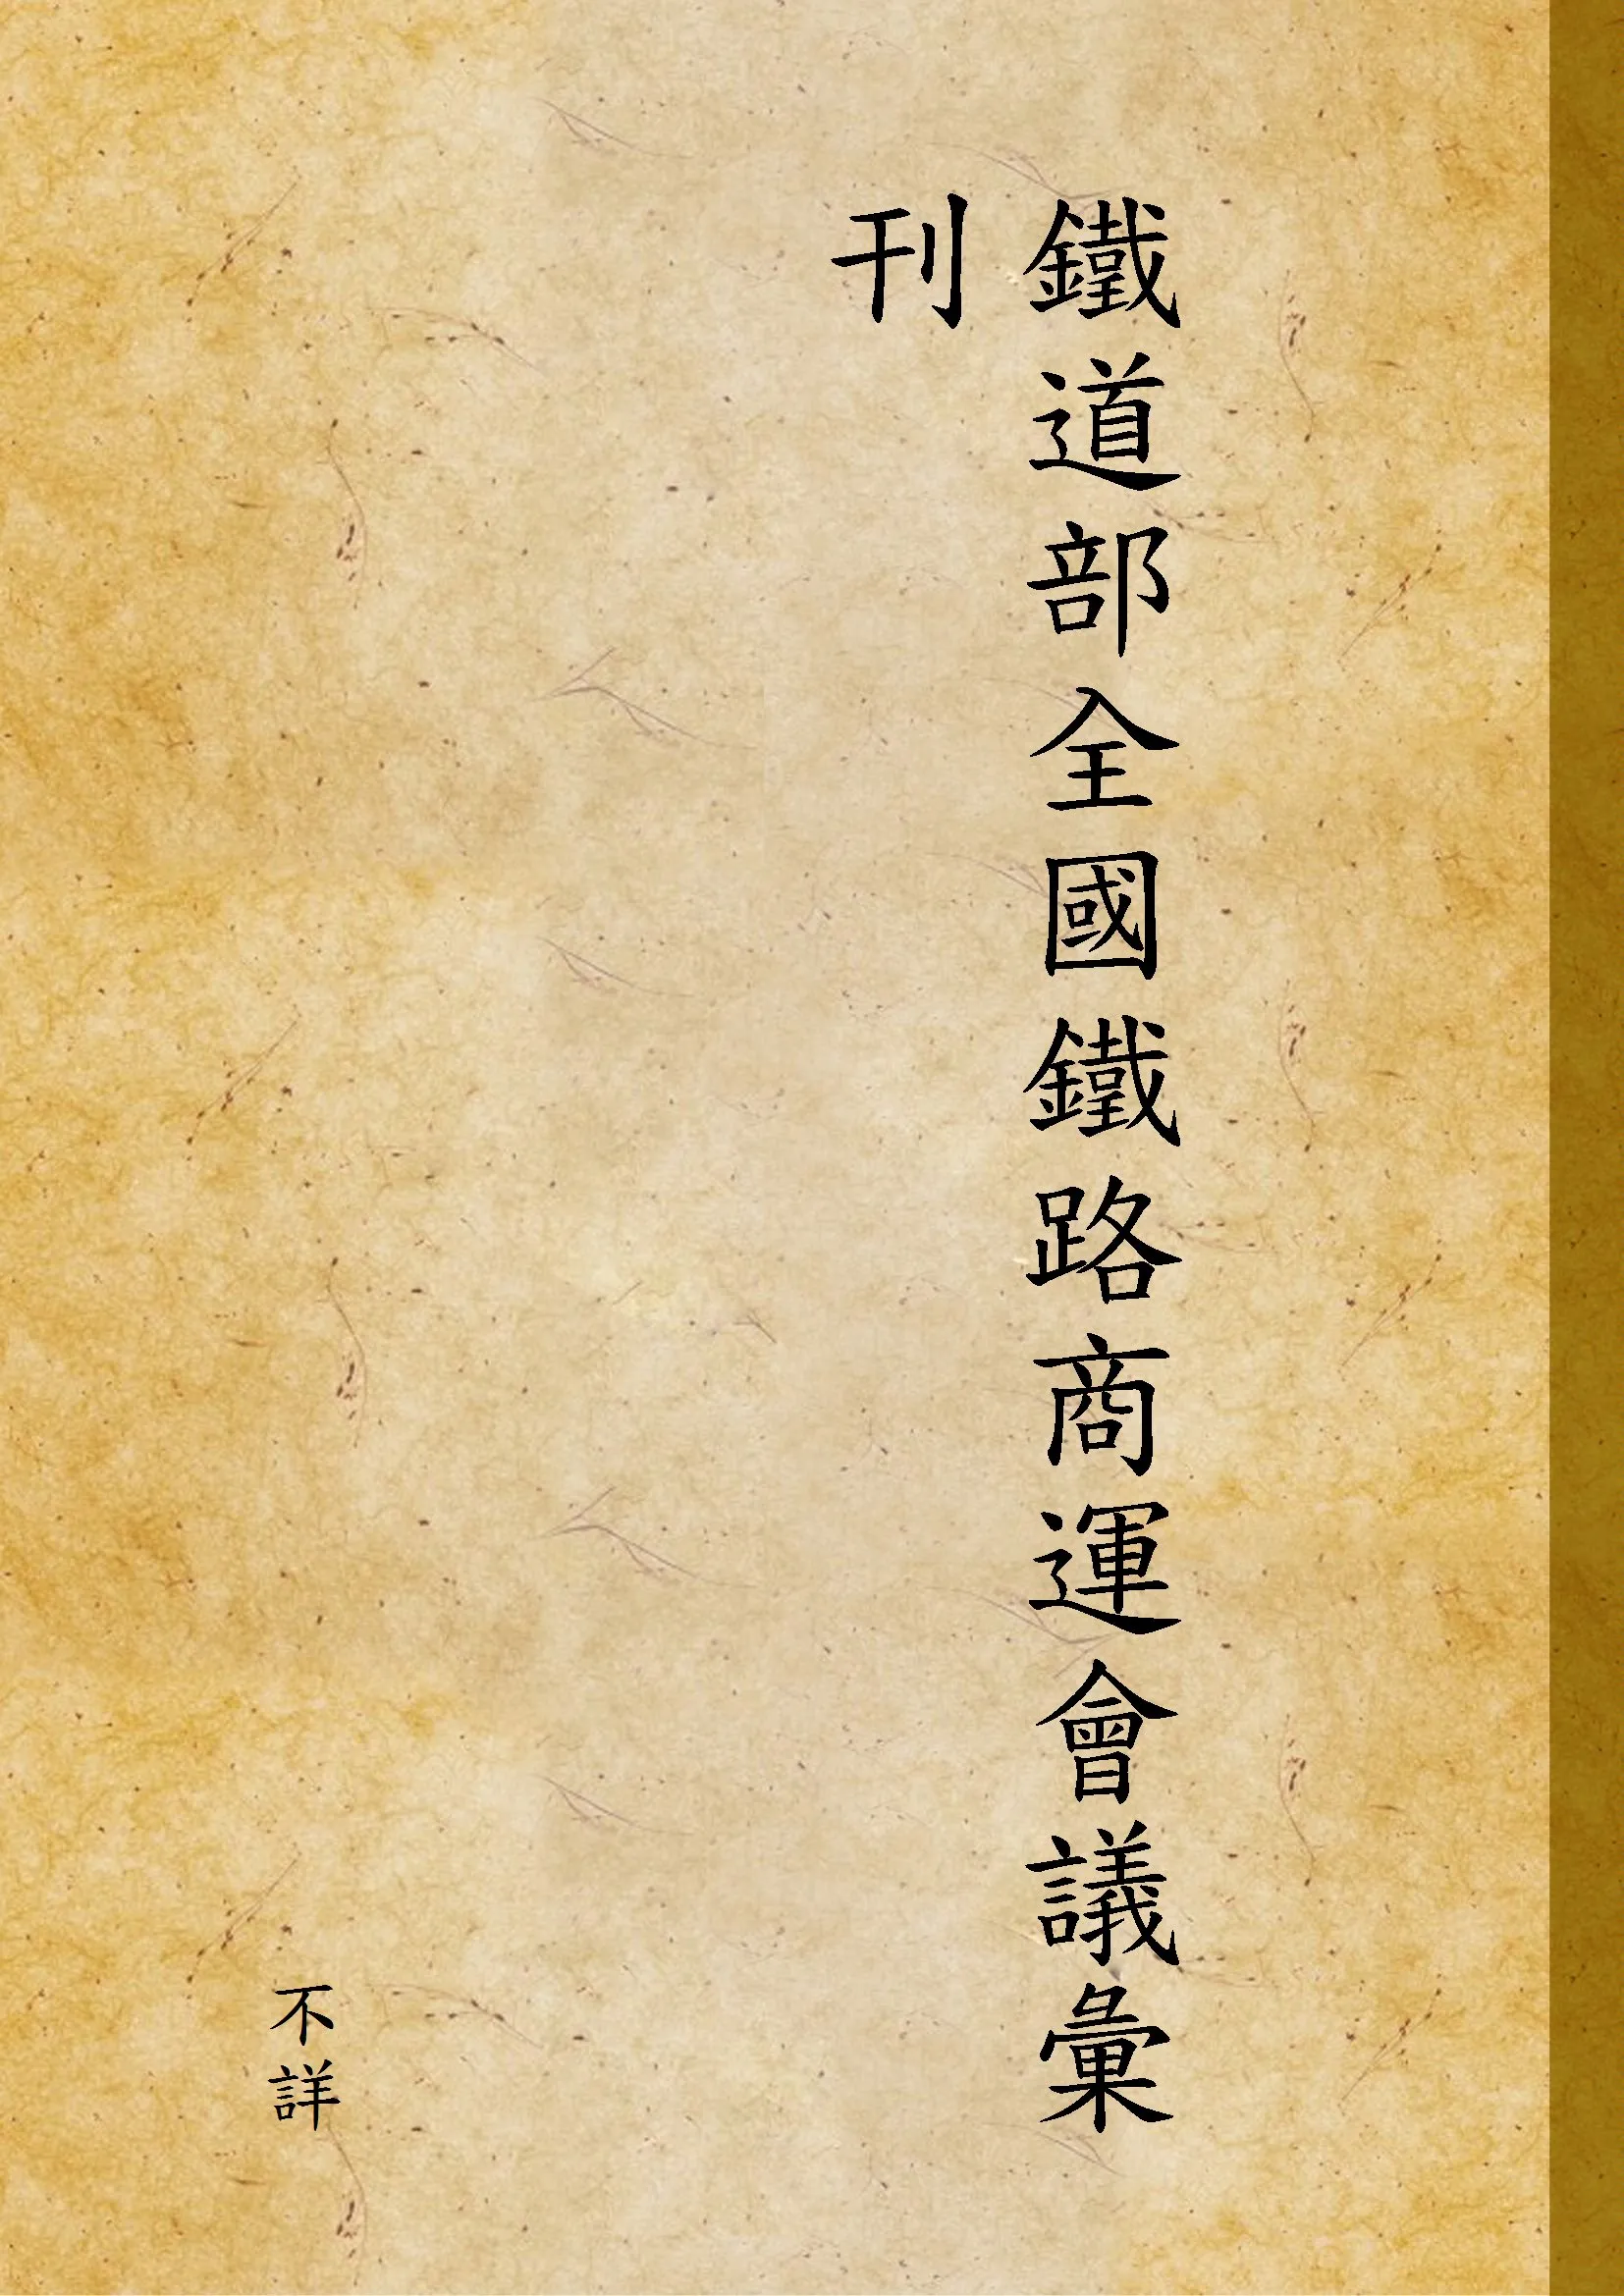 鐵道部全國鐵路商運會議彙
刊
不詳